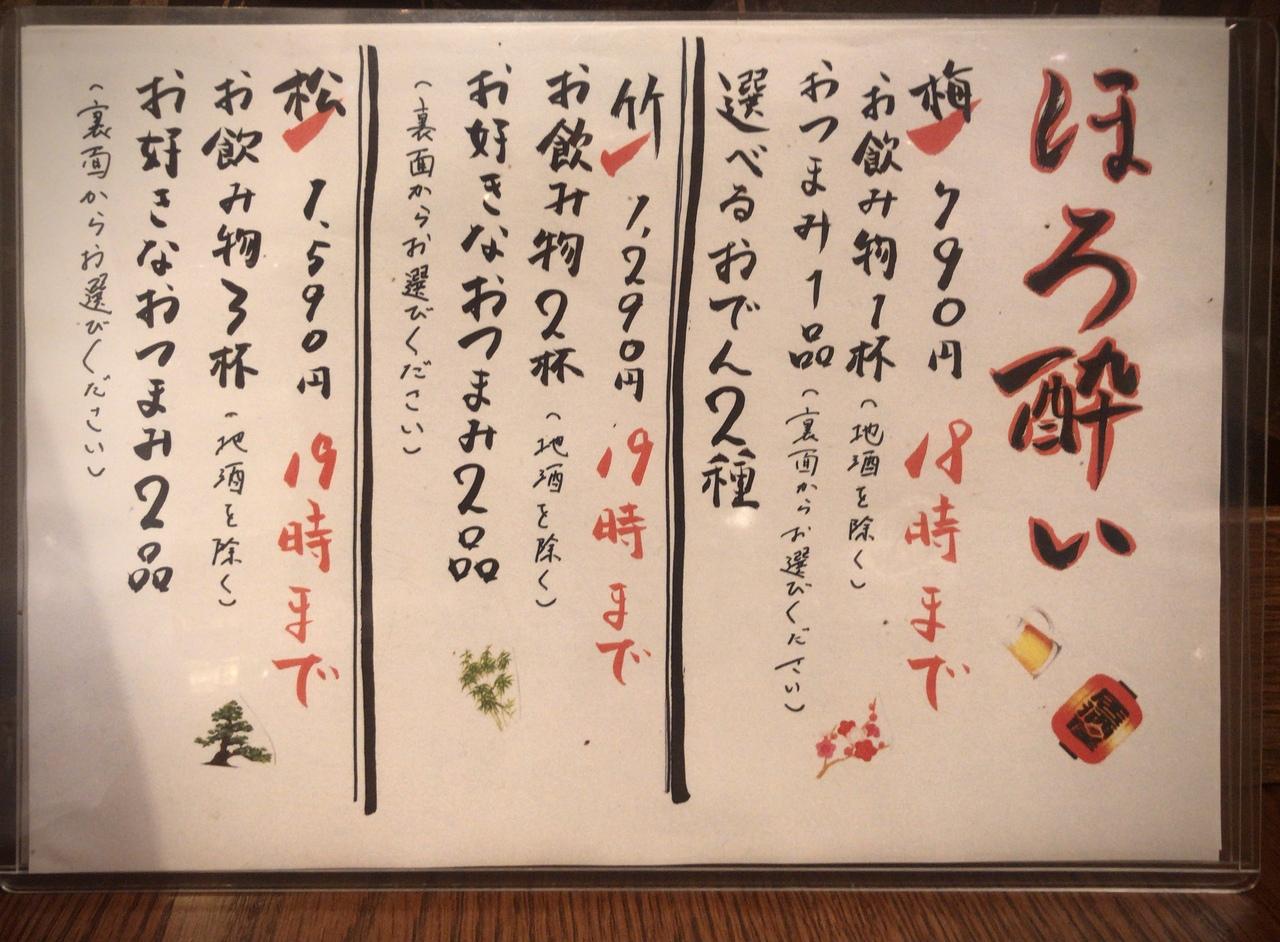 ほろ酔い
梅 790円 18時まで
お飲み物1杯(地酒を除く)
おつまみ1品(裏面からお選びください)
選べるおでん2種
竹 1,290円 19時まで
お飲み物2杯(地酒を除く)
お好きなおつまみ2品
(裏面からお選びください)
松 1,590円 19時まで
お飲み物3杯(地酒を除く)
お好きなおつまみ2品
(裏面からお選びください)